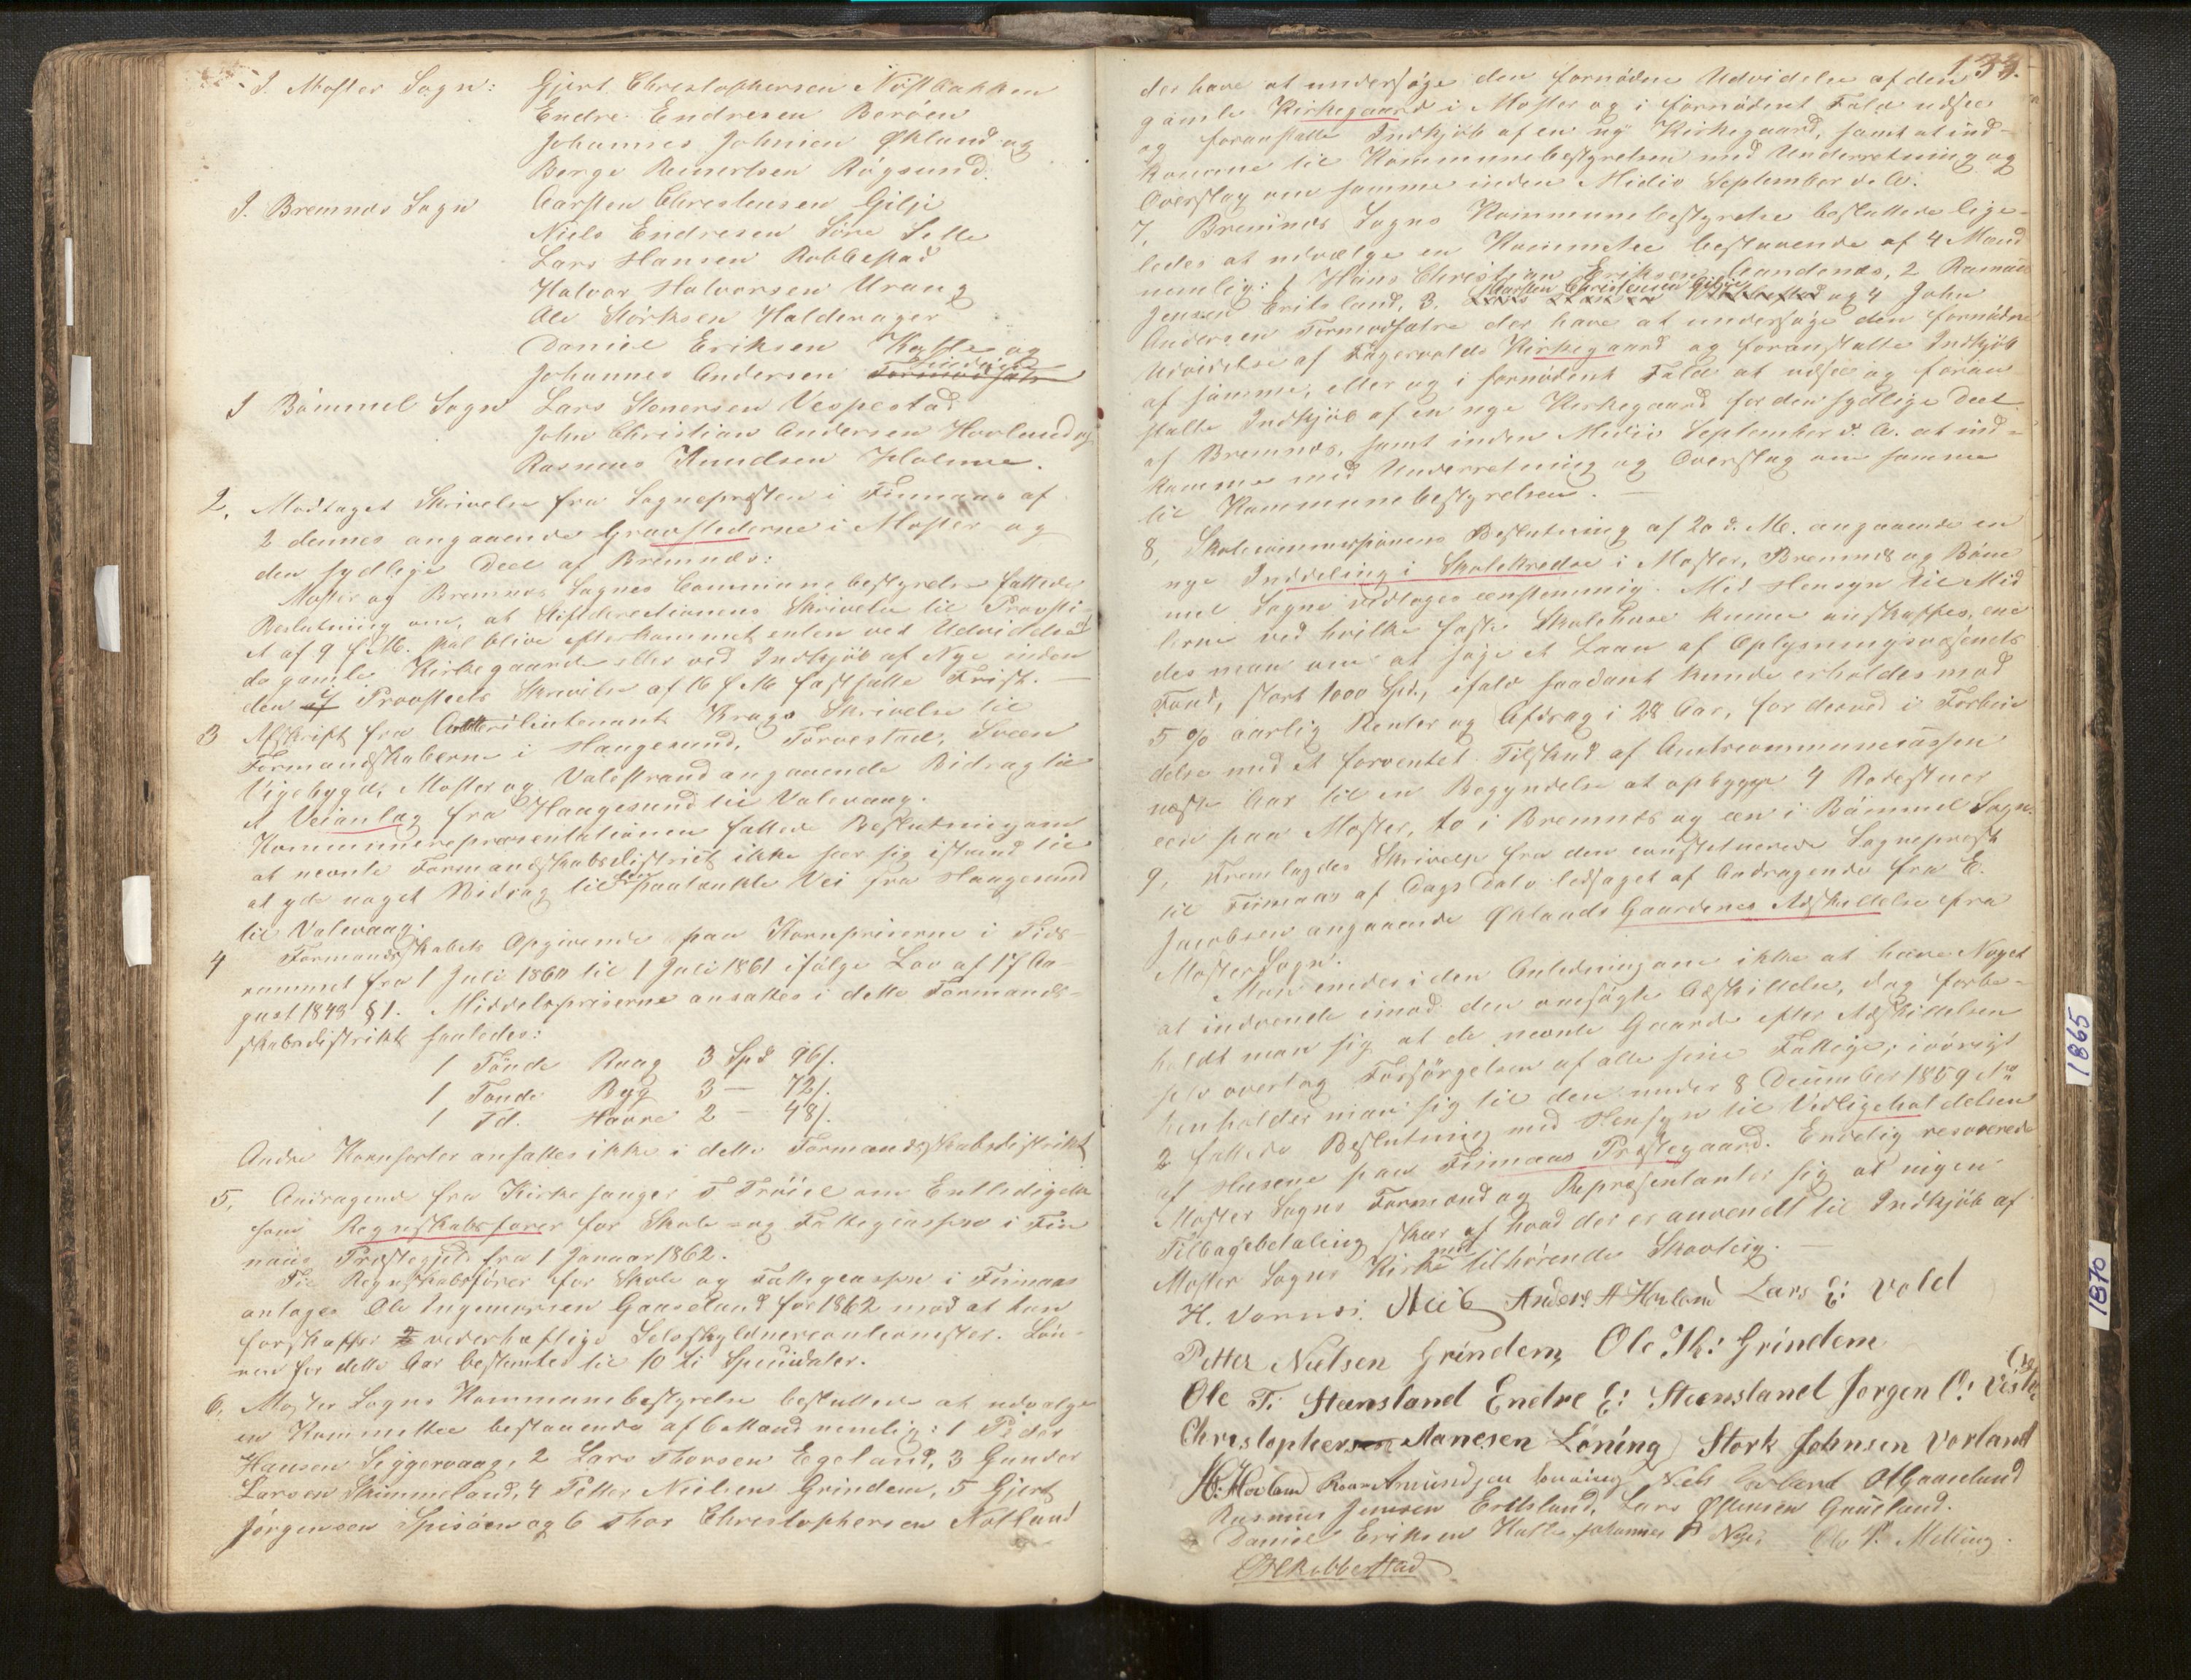 I Moster Sogn: Gjert Christophersen Nøstbakken
Endre Endresen Berøen
Johannes Johnsen Økland og
Berge Reinertsen Røgsund.
I. Bremnes Sogn Carsten Christensen Gilje
Niels Endresen Søre Selle
Lars Hansen Robbestad
Halvor Halvorsen Urang
Ole Størksen Halderager
Daniel Eriksen Hatle og
Johannes Andersen Tormodsæter
I Bømmel Sogn Lars Stenersen Vespestad
John Christian Andersen Hovland og
Rasmus Knudsen Holme.
2, Modtaget Skrivelse fra Sognepresten i Finnaas af
2 dennes angaaende Gravstederne i Moster og
den sydlige Deel af Bremnes:
Moster og Bremnes Sognes Communebestyrelse fattede
Beslutning om, at Stiftdirectionens Skrivelse til Provsti
et af 9 f. M. skal blive efterkommet enten ved Udvidelse af
de gamle Kirkegaarde eller ved Indkjøb af Nye inden
den i Provstiets Skrivelse af 16 f. M. fastsatte Frist. —
3 Afskrift fra Artterilieutenant Krags Skrivelse til
Formandskaberne i Haugesund, Torvestad, Sveen
Vigebygd, Moster og Valestrand angaaende Bidrag til
et Veianlæg fra Haugesund til Valevaag.
Kommunerepræsentationen fattede Beslutning om
at nævnte Formandskabsdistrict ikke seer sig istand til
at yde noget Bidrag til den paatænkte Vei fra Haugesund
til Valevaag.
4 Formandskabets Opgivende paa Kornpriserne i Tids-
rummet fra 1 Juli 1860 til 1 Juli 1861 ifølge Lov af 17 Au-
gust 1848 § 1. Middelspriserne ansattes i dette Formand-
skabsdistrikt saaledes:
1 Tønde Rug 3 Spd 96 s.
1 Tønde Byg 3 — 72 s.
1 Td. Havre 2 — 48 s.
Andre Kornsorter ansattes ikke i dette Formandskabsdistrikt
5, Andragende fra Kirkesanger T Trøiel om Entledigelse
som Regnskabsfører for Skole- og Fattigcassen i Fin
naas Præstegjeld fra 1 Januar 1862.
Til Regnskabsfører for Skole og Fattigcassen i Finnaas
antages Ole Ingemorsen Gaaseland for 1862 mod at han
forskaffer 2 vederhæftige Selvskyldnercautionister. Løn-
nen for dette Aar bestemtes til 10 ti Speciedaler.
6, Moster Sogns Kommunebestyrelse besluttede at udvælge
en Kommittee bestaaende af 6 Mænd nemlig: 1 Peder
Hansen Siggervaag, 2 Lars Thorsen Egeland, 3 Gunder
Larsen Skimmeland, 4 Petter Nielsen Grindem, 5 Gjert
Jørgensen Spisøen og 6 Thor Christophersen Notland
133.
der have at undersøge den fornødne Udvidelse af den
gamle Kirkegaard i Moster og i fornødent Fald udsee
og foranstalte Indkjøb af en ny Kirkegaard, samt at ind-
komme til Kommunebestyrelsen med Underretning og
Overslag om samme inden Midio September d. A.
7, Bremnes Sogns Kommunebestyrelse besluttede lige-
ledes at udvælge en Kommitee bestaaende af 4 Mænd
nemlig: 1 Hans Christian Eriksen Aandenes, 2 Rasmus
Jensen Eritsland, 3. Carsten Christensen Gilje og 4 John
Andersen Tormodsætre der have at undersøge den fornødne
Udvidelse af Fagervolds Kirkegaard og foranstalte Indkjøb
af samme, eller og i fornødent Fald at udsee og foran
stalte Indkjøb af en nye Kirkegaard for den sydlige Deel
af Bremnes, samt inden Midio September d. A. at ind-
komme med Underretning og Overslag om samme
til Kommunebestyrelsen. —
8, Skolecommissionens Beslutning af 20 d. M. angaaende en
nye Inddeling i Skolekredse i Moster, Bremnes og Bøm
mel Sogne vedtoges eenstemmig. Med Hensyn til Mid
lerne ved hvilke faste Skolehuse kunne anskaffes, ene
des man om at søge et Laan af Oplysningsvæsenets
Fond, stort 1000 Spd., ifald saadant kunde erholdes mod
5 % aarlig Renter og Afdrag i 28 Aar, for derved i Forbin
delse med et forventet Tilskud af Amtscommunecassen
næste Aar til en Begyndelse at opbygge 4 Rodestuer
een paa Moster, to i Bremnes og een i Bømmel Sogn.
9, Fremlagdes Skrivelse fra den constituerede Sogneprest
til Finnaas af Dags Dato ledsaget af Andragende fra E.
Jacobsen angaaende Øklands Gaardenes Adskillelse fra
Moster Sogn.
Man enedes i den Anledning om ikke at have Noget
at indvende imod den omsøgte Adskillelse, dog forbe-
holdt man sig at de nævnte Gaarde efter Adskillelsen
selv overtog Forsørgelsen af alle sine Fattige; iøvrigt
henholder man sig til den under 8 December 1859 No
2 fattede Beslutning med Hensyn til Vedligeholdelsen
af Husene paa Finnaas Præstegaard. Endelig reserverede
Moster Sogns Formænd og Repræsentanter sig at ingen
Tilbagebetaling skeer af hvad der er anvendt til Indkjøb af
Moster Sogns Kirke med tilhørende Skovteig. —
Anders A Hovland Lars E: Vold
Petter Nielsen Grindem Ole Th: Grindem
Ole T. Steensland Endre E: Steensland Jørgen O:
Christophersen Aanesen Løning Størk Johnsen Vorland
H. Hovland Roar Amundsen Løning Niels Hovland O I Gaaseland
Rasmus Jensen Eritsland, Lars Østensen Gaaseland.
Daniel Eriksen Hatle Johannes Ole P. Melling.
O H Robbestad
1865
1870